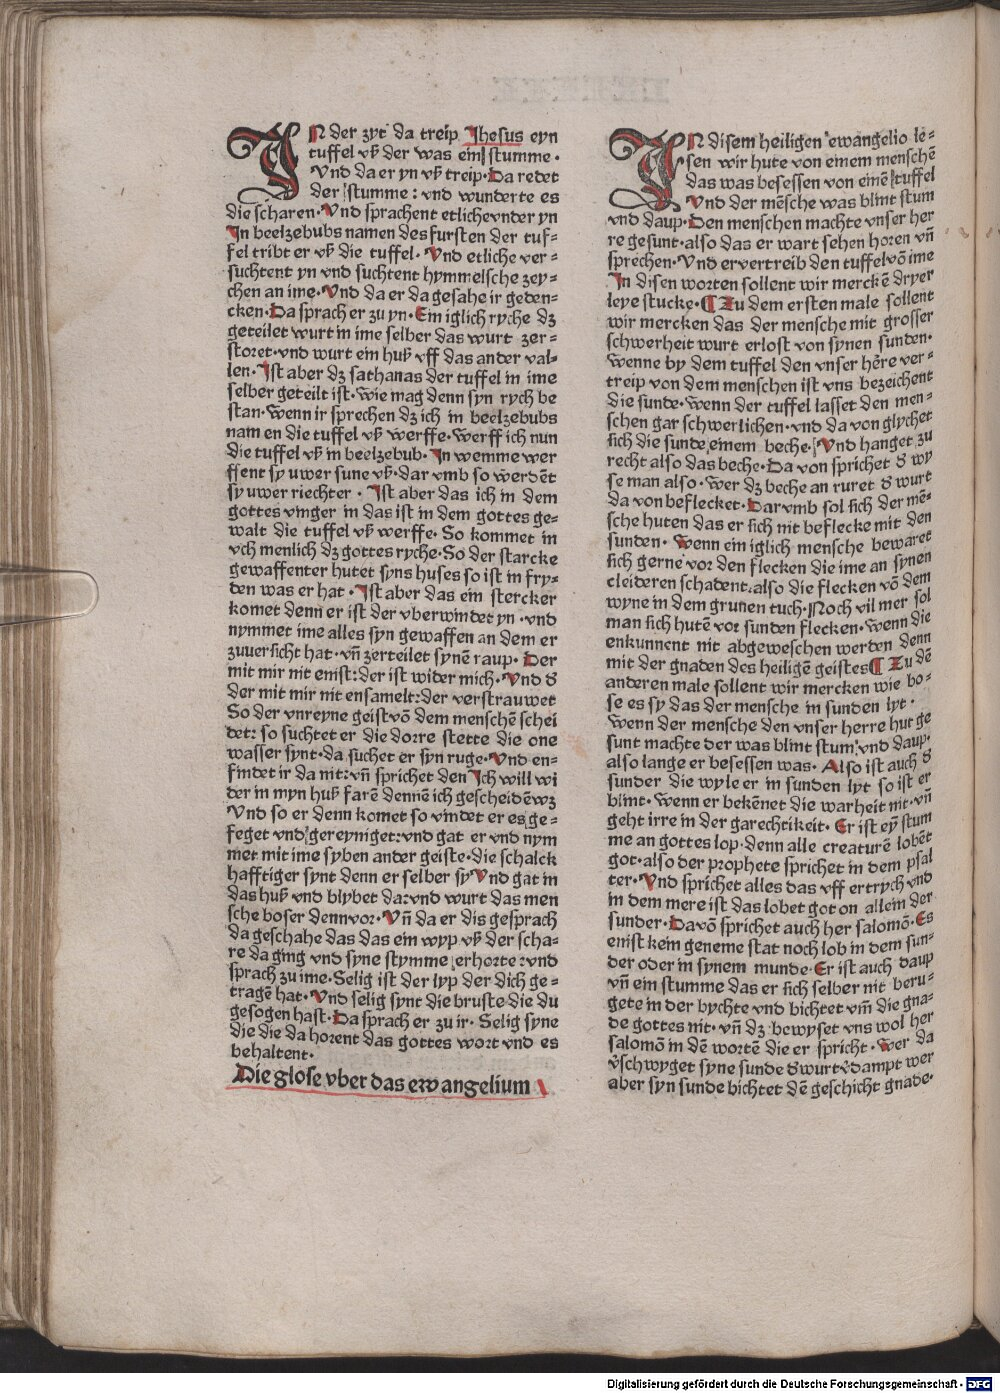 IN der zyt da treip Jhesus eyn
tuffel vß der was ein stumme.
Vnd da er yn vß treip. Da redet
der stumme: vnd wunderte es
die scharen. Vnd sprachent etliche vnder yn
In beelzebubs namen des fursten der tuf-
fel tribt er vß die tuffel. Vnd etliche ver-
suchtent yn vnd suchtent hymmelsche zey-
chen an ime. Vnd da er da gesahe ir geden-
cken. Da sprach er zu yn. Ein iglich ryche dz
geteilet wurt in ime selber das wurt zer-
storet. vnd wurt ein huß vff das ander val-
len. Ist aber dz sathanas der tuffel in ime
selber geteilt ist. wie mag denn syn rych be
stan. wenn ir sprechen dz ich in beelzebubs
nam en die tuffel vß werffe. werff ich nun
die tuffel vß in beelzebub. In wemme wer
ffent sy uwer sune vß. dar vmb so werdēt
sy uwer riechter. Ist aber das ich in dem
gottes vinger in das ist in dem gottes ge-
walt die tuffel vß werffe. So kommet in
vch menlich dz gottes ryche. So der starcke
gewaffenter hutet syns huses so ist in fry-
den was er hat. Ist aber das ein stercker
komet denn er ist der vberwindet yn. vnd
nymmet ime alles syn gewaffen an dem er
zuuersicht hat. vñ zerteilet synē raup. Der
mit mir nit enist: der ist wider mich. Vnd d̄
der mit mir nit ensamelt: der verstrauwet
So der vnreyne geist vō dem menschē schei
det: so suchtet er die dorre stette die one
wasser synt. da suchet er syn ruge. Vnd en-
findet ir da nit: vñ sprichet den Ich will wi
der in myn huß farē dennē ich gescheidē wz
Vnd so er denn komet so vindet er es ge-
feget vnd gereyniget: vnd gat er vnd nym
met mit ime syben ander geiste. die schalck
hafftiger synt denn er selber sy Vnd gat in
das huß vnd blybet dar vnd wurt das men
sche boser denn vor. Vñ da er dis gesprach
da geschahe das das ein wyp vß der scha-
re da ging vnd syne stymme erhorte: vnd
sprach zu ime. Selig ist der lyp der dich ge-
tragē hat. Vnd selig synt die bruste die du
gesogen hast. Da sprach er zu ir. Selig syne
die die da horent das gottes wort vnd es
behaltent.
Die glose vber das ewangelium
IN disem heiligen ewangelio le-
sen wir hute von einem menschē
das was besessen von einē tuffel
Vnd der mēsche was blint stum
vnd daup. Den menschen machte vnser her
re gesunt. also das er wart sehen horen vñ
sprechen. Vnd er vertreib den tuffel vō ime
In disen worten sollent wir merckē dryer
leye stucke. ¶ Zu dem ersten male sollent
wir mercken das der mensche mit grosser
schwerheit wurt erlost von synen sunden.
wenne by dem tuffel den vnser hēre ver-
treip von dem menschen ist vns bezeichent
die sunde. wenn der tuffel lasset den men-
schen gar schwerlichen. vnd da von glychet
sich die sunde einem beche. Vnd hanget zu
recht also das beche. Da von sprichet d̄ wy
se man also. wer dz beche an ruret d̄ wurt
da von beflecket. Dar vmb sol sich der mē-
sche huten das er sich nit beflecke mit den
sunden. wenn ein iglich mensche bewaret
sich gerne vor den flecken die ime an synen
cleideren schadent. also die flecken vō dem
wyne in dem grunen tuch. Noch vil mer sol
man sich hutē vor sunden flecken. wenn die
enkunnent nit abgeweschen werden denn
mit der gnaden des heiligē geistes ¶ Zu dē
anderen male sollent wir mercken wie bo-
se es sy das der mensche in sunden lyt.
wenn der mensche den vnser herre hut ge
sunt machte der was blint stum vnd daup.
also lange er besessen was. Also ist auch d̄
sunder die wyle er in sunden lyt so ist er
blint. wenn er bekēnet die warheit nit. vñ
geht irre in der garechtikeit. Er ist eȳ stum
me an gottes lop. denn alle creaturē lobēt
got. also der prophete sprichet in dem psal
ter. Vnd sprichet alles das vff ertrych vnd
in dem mere ist das lobet got on allein der
sunder. Da vō sprichet auch her salomō. Es
enist kein geneme stat noch lob in dem sun-
der oder in synem munde. Er ist auch daup
vñ ein stumme das er sich selber nit beru-
gete in der bychte vnd bichtet vm̄ die gna-
de gottes nit. vñ dz bewyset vns wol her
salomō in dē wortē die er spricht. wer da
v̄schwyget syne sunde d̄ wurt v̄dampt wer
aber syn sunde bichtet dē geschicht gnade.
Digitalisierung gefördert durch die Deutsche Forschungsgemeinschaft - DFG